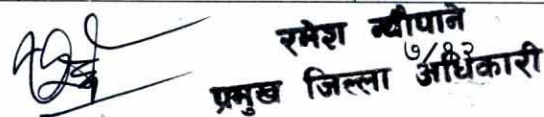 रमेश न्यौपाने
७/१२
प्रमुख जिल्ला अधिकारी